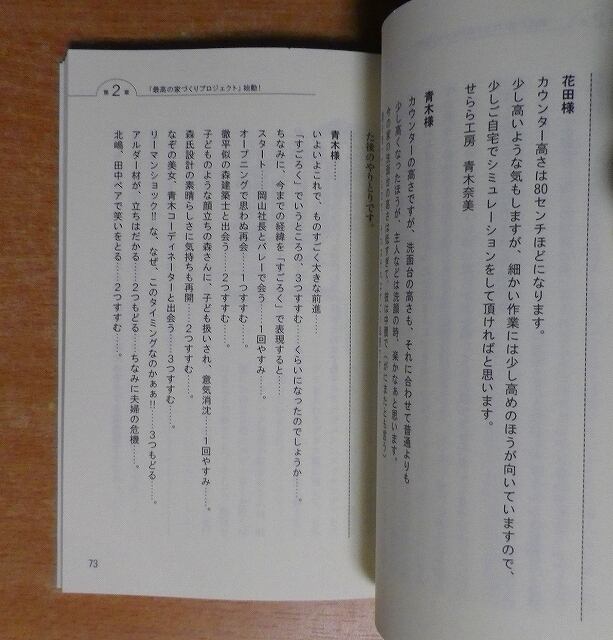 花田様
カウンター高さは80センチほどになります。
少し高いような気もしますが、細かい作業には少し高めのほうが向いていますので、
少しご自宅でシミュレーションをして頂ければと思います。
せらら工房　青木奈美
青木様
カウンターの高さですが、洗面台の高さも、それに合わせて普通よりも
少し高くなったほうが、主人などは洗顔の時、楽かなぁと思います。
今の家の洗面台の高さは低すぎて、彼は中腰で
第2章
「最高の家づくりプロジェクト」始動！
た後のやりとりです。
青木様……
いよいよこれで、ものすごく大きな前進……
「すごろく」でいうところの、3つすすむ……くらいになったのでしょうか……。
ちなみに、今までの経緯を「すごろく」で表現すると……
スタート……岡山社長とバレーで会う……1回やすみ……。
オープニングで思わぬ再会……1つすすむ……。
徹平似の森建築士と出会う……2つすすむ……。
子どものような顔立ちの森さんに、子ども扱いされ、意気消沈……1回やすみ……。
森氏設計の素晴らしさに気持ちも再開……2つすすむ……。
なぞの美女、青木コーディネーターと出会う……3つすすむ……。
リーマンショック!! な、なぜ、このタイミングなのかぁぁ!!……3つもどる……。
アルダー材が、立ちはだかる……2つもどる……ちなみに夫婦の危機……。
北嶋、田中ペアで笑いをとる……2つすすむ……。
73